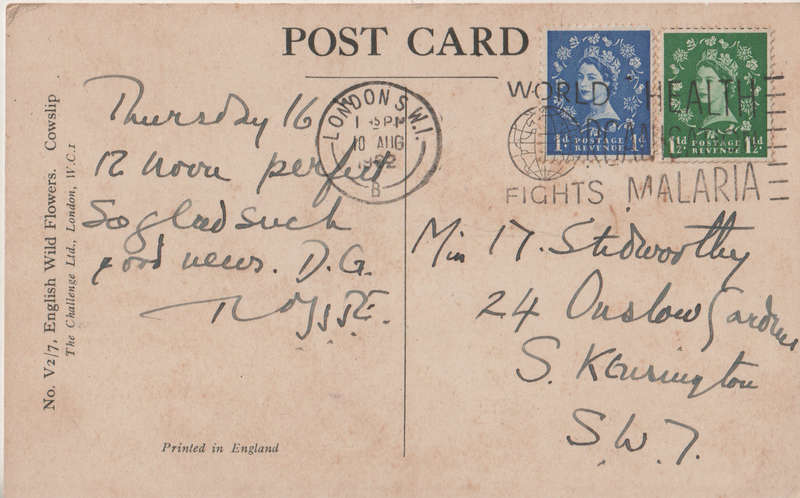 POST CARD
No. V2/7, English Wild Flowers. Cowslip
The Challenge Ltd., London, W.C.1
Thursday 16
12 noon perfect
So glad such
good news. D.G.
LONDON S.W.1.
PM
10 AUG
1962
B
1D POSTAGE REVENUE
1½D 1½D POSTAGE REVENUE
WORLD HEALTH
ORGANISATION
FIGHTS MALARIA
Miss M. Stedworthy
24 Onslow Gardens
S. Kensington
S.W.7.
Printed in England